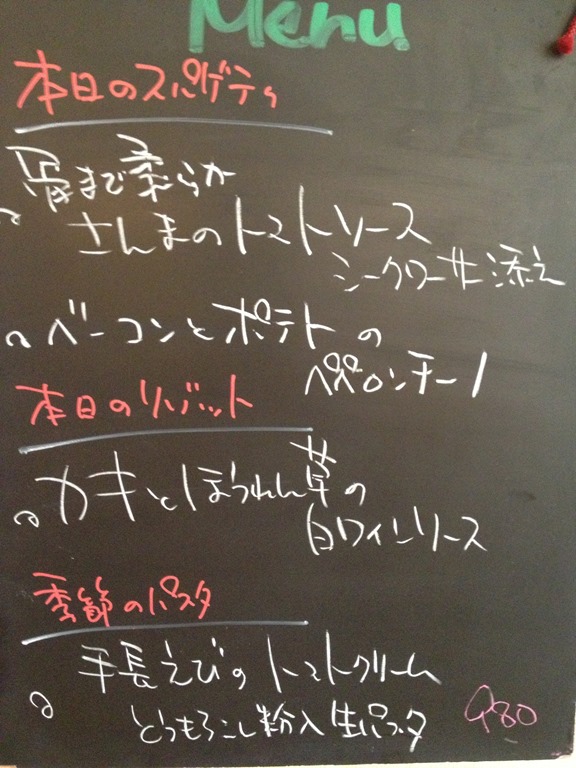 Menu
本日のスパゲティ
骨まで柔らか
さんまのトマトソース
シークワーサー添え
ベーコンとポテトの
ペペロンチーノ
本日のリゾット
カキとほうれん草の
白ワインソース
季節のパスタ
手長えびのトマトクリーム
とうもろこし粉入生パスタ 980